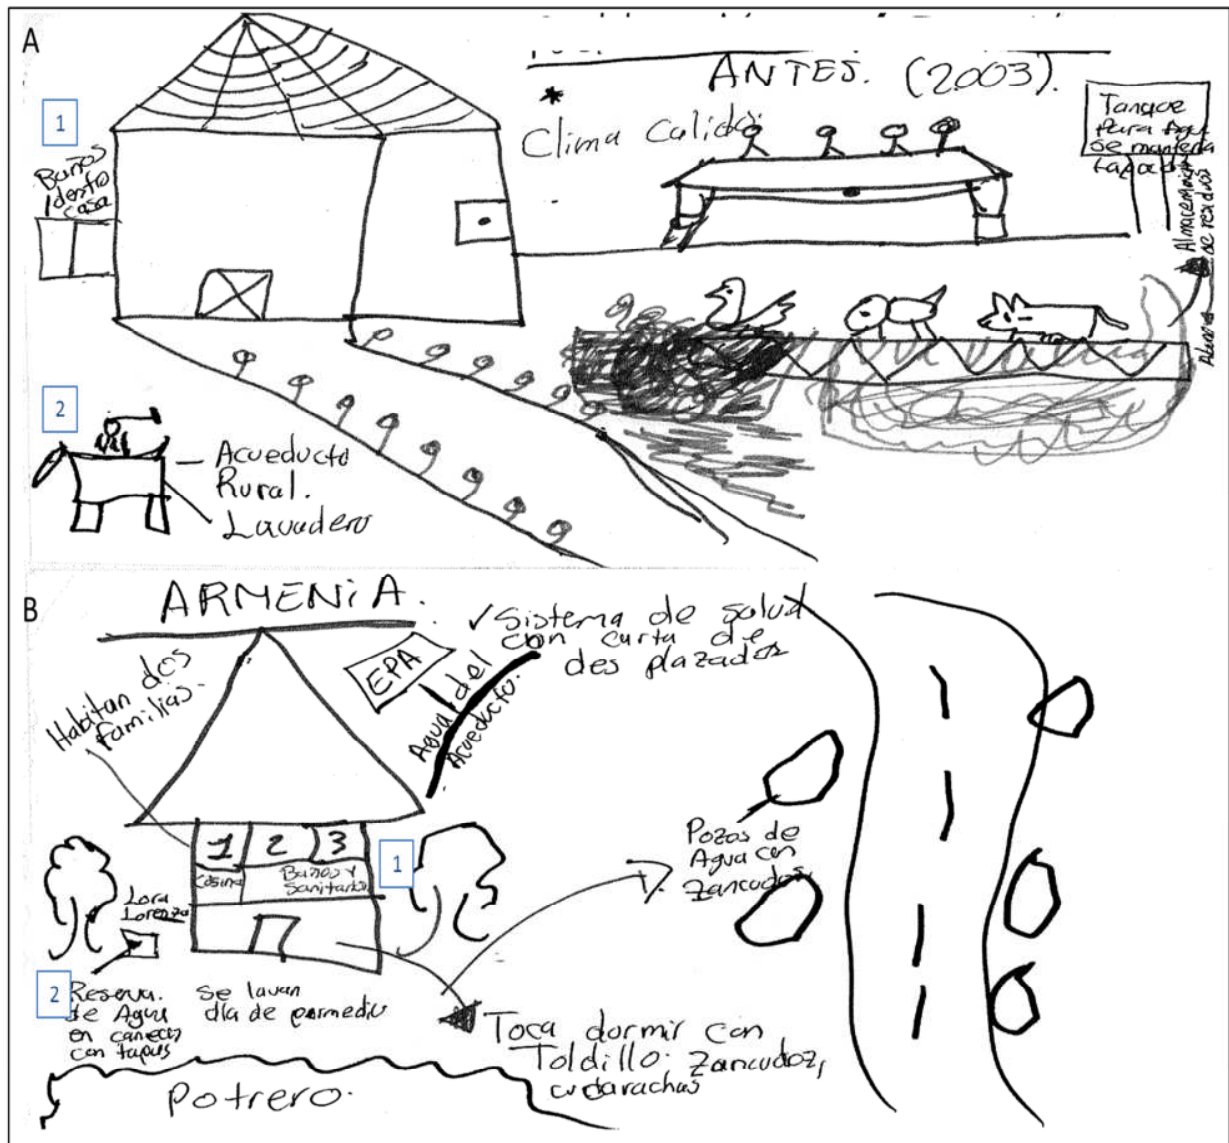 A
ANTES. (2003).
Clima Calido.
1
Baños
dentro
casa
Tanque
Para Agua
Se mantenía
tapado.
Almacenamiento
de residuos
2
Acueducto
Rural.
Lavadero
B
ARMENiA.
✓Sistema de salud
con carta de
des plazados
EPA
Agua del
Acueducto.
Habitan dos
familias.
1 2 3
Cosina
Baños y
Sanitario
1
Lora
Lorenza
Pozos de
Agua con
Zancudos
2
Reserva.
de Agua
en canecas
con tapas
se lavan
día de por medio
Toca dormir con
Toldillo: Zancudoz,
cucarachas
Potrero.